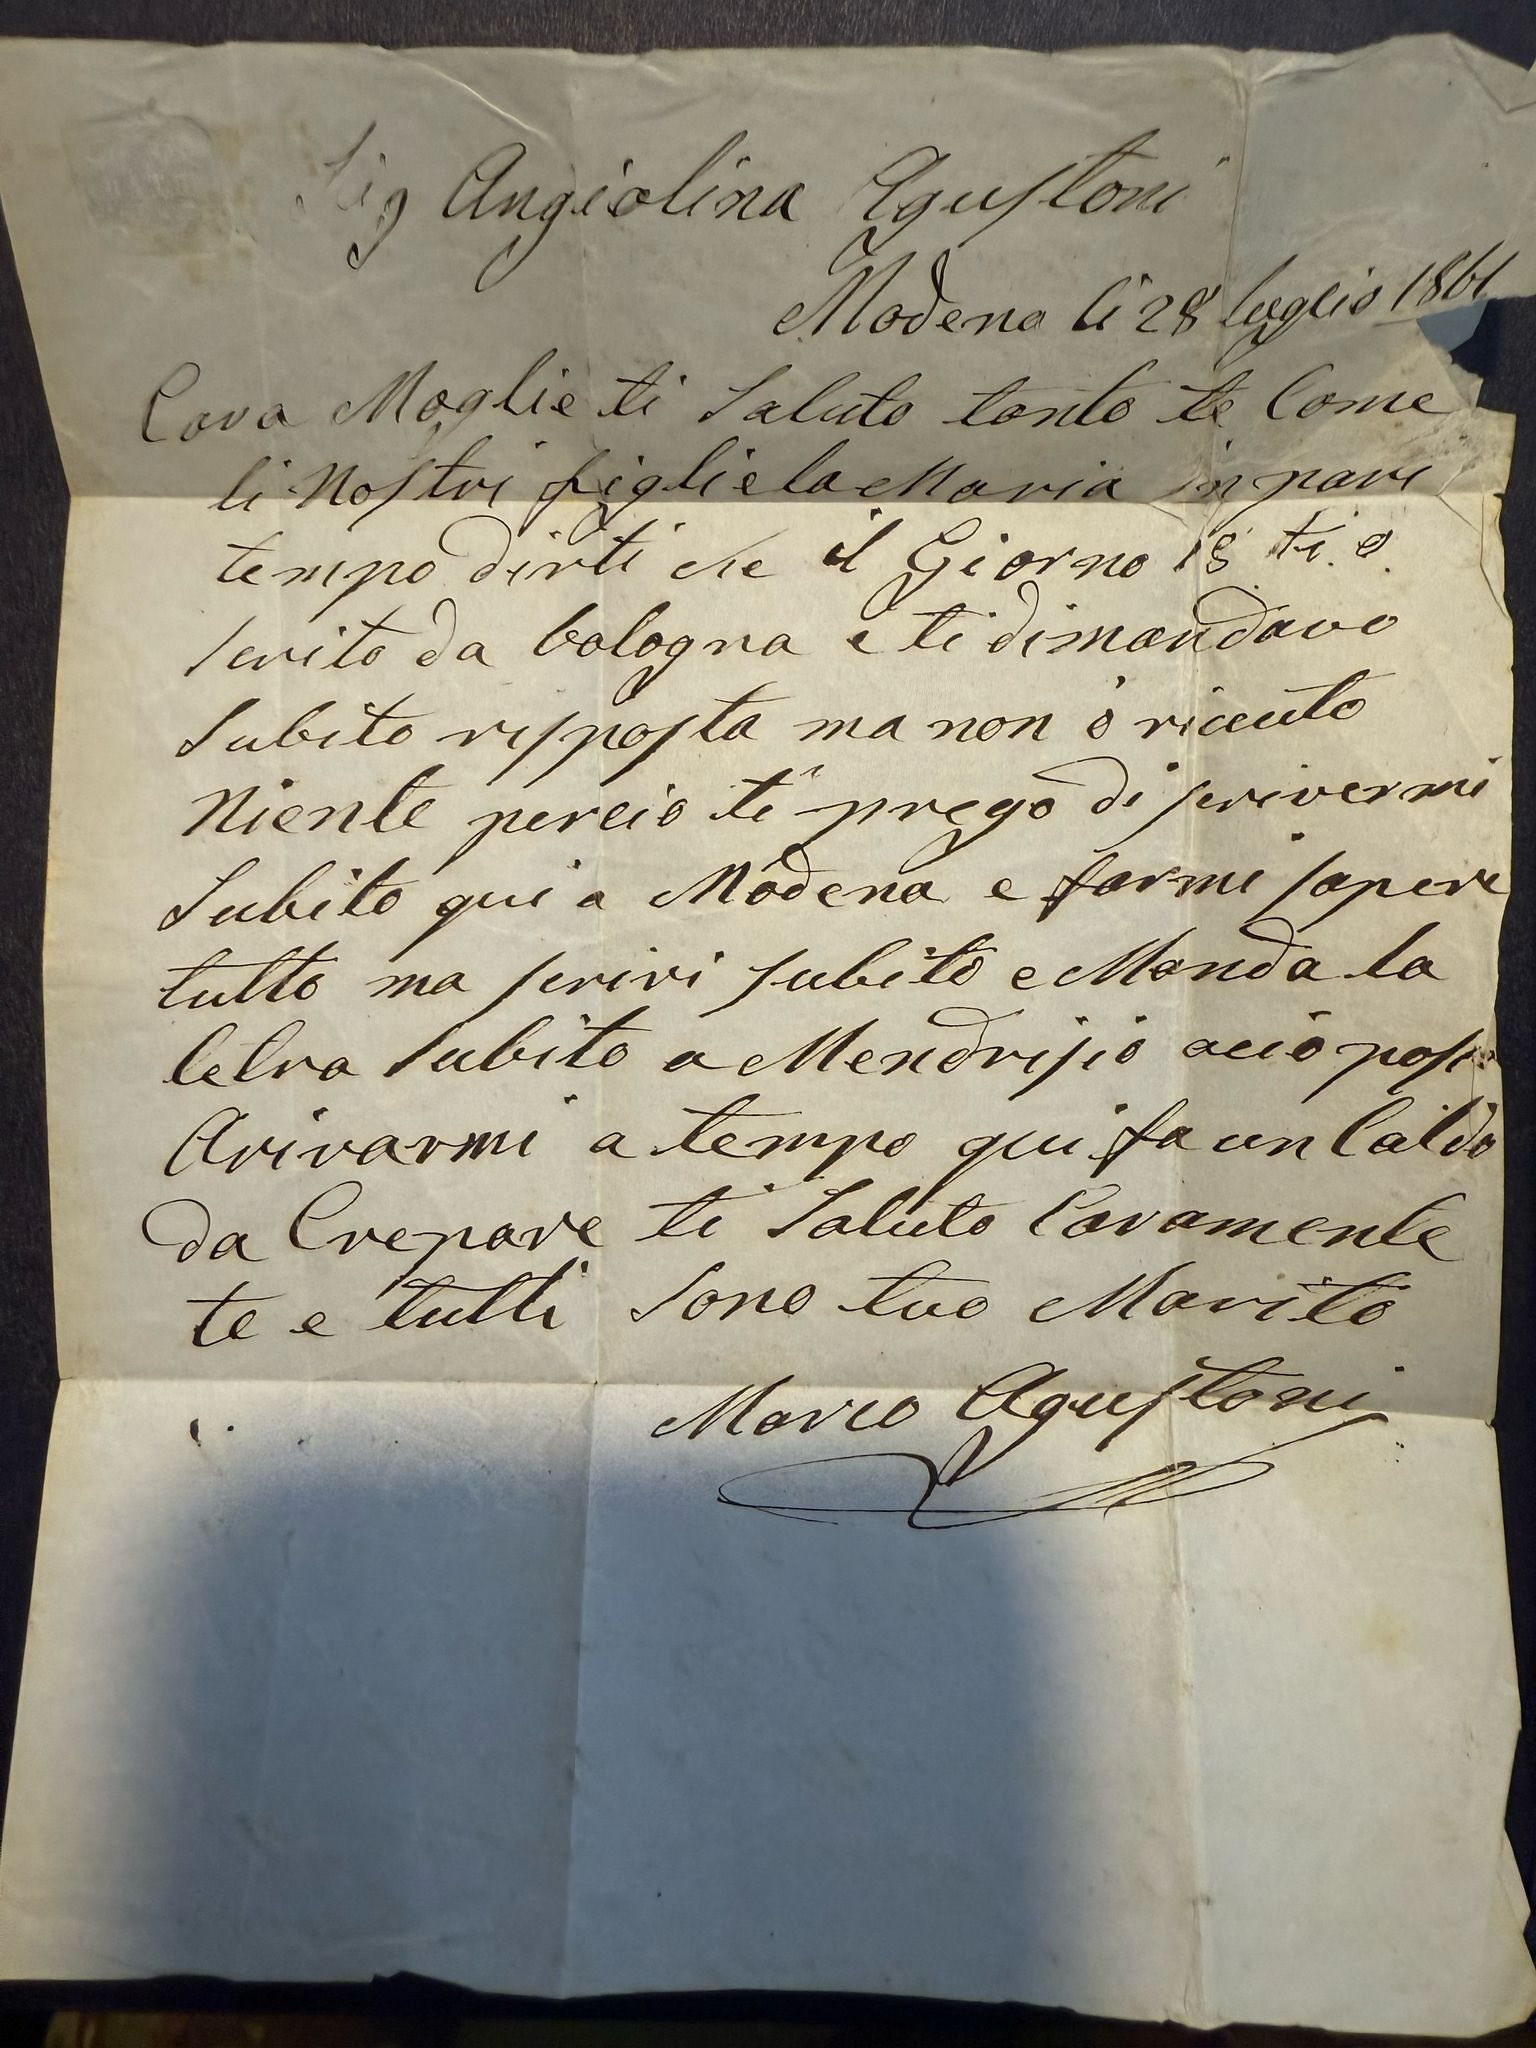 Sig Angiolina Agustoni
Modena li 28 luglio 1861
Cara Moglie ti Saluto tanto te Come
li Nostri figli e la Maria in pari
tempo dirti che il Giorno 18 ti. o.
scrito da bologna e ti dimandavo
Subito rispposta ma non ò riceuto
Niente perciò ti prego di scrivermi
Subito qui a Modena e farmi sapere
tutto ma scrivi subito e Manda la
letra Subito a Mendrisio aciò posi
Arivarmi a tempo qui fa un Caldo
da Crepare ti Saluto Caramente
te e tutti Sono tuo Marito
Marco Agustoni